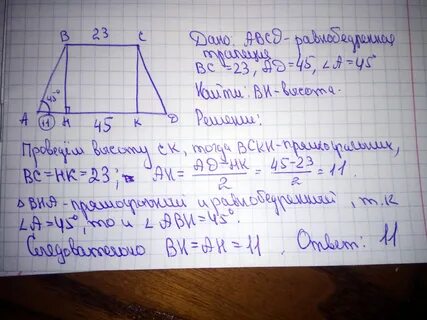 23
B C
45°
A 11 H 45 K D
Дано: ABCD - равнобедренная
трапеция
BC = 23, AD = 45, ∠A = 45°
Найти: BH - высота.
Решение:
Проведём высоту CK, тогда BCKH - прямоугольник,
BC = HK = 23; AH = (AD - HK)/2 = (45 - 23)/2 = 11.
△BHA - прямоугольный и равнобедренный, т.к
∠A = 45°, то и ∠ABH = 45°.
Следовательно BH = AH = 11. Ответ: 11